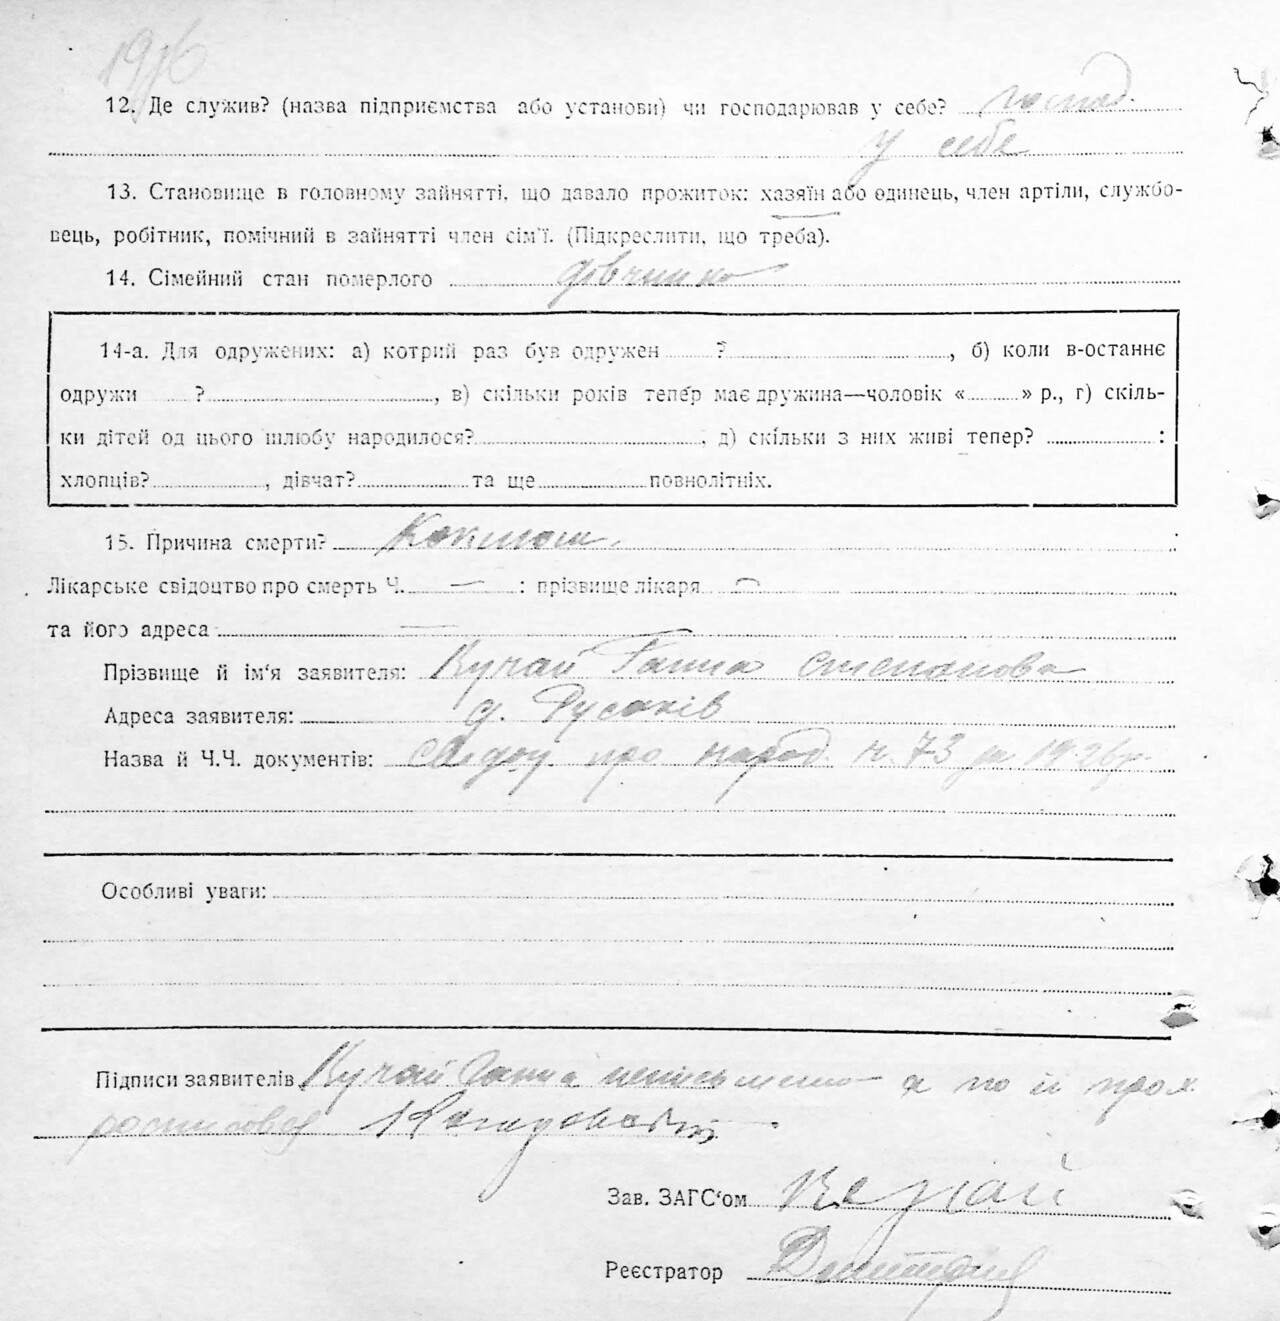 12. Де служив? (назва підприємства або установи) чи господарював у себе? господ.
у себе
13. Становище в головному зайнятті, що давало прожиток: хазяїн або одинець, член артіли, службо-
вець, робітник, помічний в зайнятті член сім'ї. (Підкреслити, що треба).
14. Сімейний стан померлого дівчинка
14-а. Для одружених: а) котрий раз був одружен ?, б) коли в-останнє
одружи ?, в) скільки років тепер має дружина—чоловік « » р., г) скіль-
ки дітей од цього шлюбу народилося?, д) скільки з них живі тепер? :
хлопців?, дівчат? та ще повнолітніх.
15. Причина смерти? Коклюш.
Лікарське свідоцтво про смерть Ч. — : прізвище лікаря —
та його адреса —
Прізвище й ім'я заявителя: Кучай Ганна Степанова
Адреса заявителя: д. Русаків
Назва й Ч.Ч. документів: про народ. ч. 73 за 1926 р.
Особливі уваги:
Підписи заявителів Кучай Ганна неписьменна а по її прох
росписовся
Зав. ЗАГС'ом
Реєстратор